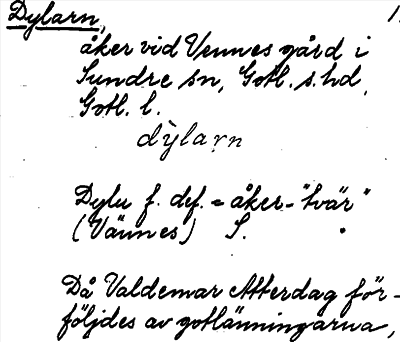 Dylarn,
åker vid Vennes gård i
Sundre sn, Gotl. s. hd,
Gotl. l.
dỳlarn
Dylu f. def. = åker-"tvär"
(Vännes) S.
Då Valdemar Atterdag för-
följdes av gotlänningarna,